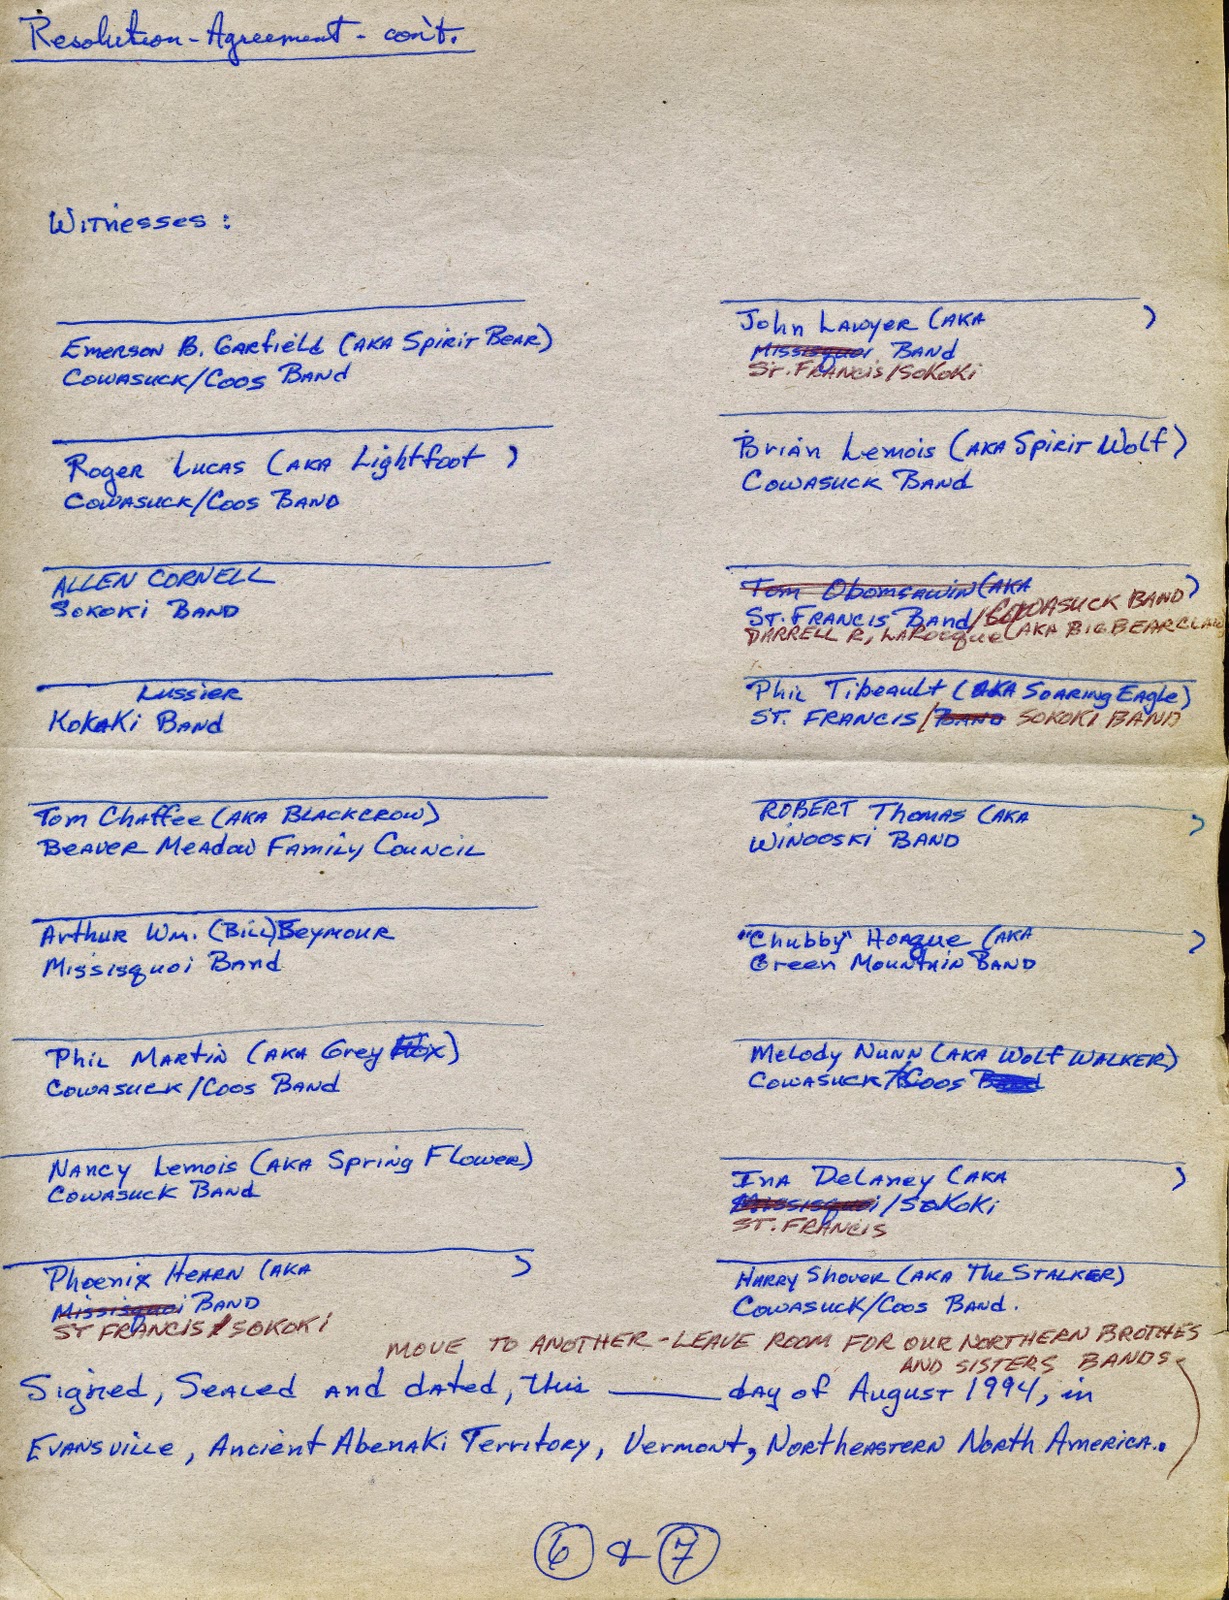 Resolution-Agreement - con't.
Witnesses:
Emerson B. Garfield (AKA Spirit Bear)
Cowasuck/Coos Band
Roger Lucas (AKA Lightfoot )
Cowasuck/Coos Band
ALLEN CORNELL
Sokoki Band
Lussier
KoKaKi Band
Tom Chaffee (AKA Blackcrow)
Beaver Meadow Family Council
Arthur Wm. (Bill) Seymour
Missisquoi Band
Phil Martin (AKA Grey )
Cowasuck/Coos Band
Nancy Lemois (AKA Spring Flower)
Cowasuck Band
Phoenix Hearn (AKA )
Missisquoi Band
ST FRANCIS/SOKOKI
John Lawyer (AKA )
Missisquoi Band
St. Francis/Sokoki
Brian Lemois (AKA Spirit Wolf)
Cowasuck Band
Tom Obomsawin (AKA )
St. Francis Band/Cowasuck Band
DARRELL R. LaRocque (AKA BIG BEARCLAW
Phil Tibeault (AKA Soaring Eagle)
ST. FRANCIS/Band SOKOKI BAND
ROBERT Thomas (AKA )
Winooski Band
"Chubby" Hoague (AKA )
Green Mountain Band
Melody Nunn (AKA Wolf Walker)
Cowasuck/Coos Band
Ina DeLaney (AKA )
Missisquoi/Sokoki
ST. FRANCIS
Harry Shover (AKA The Stalker)
Cowasuck/Coos Band.
MOVE TO ANOTHER - LEAVE ROOM FOR OUR NORTHERN BROTHES
AND SISTERS BANDS
Signed, Sealed and dated, this ______ day of August 1994, in
Evansville, Ancient Abenaki Territory, Vermont, Northeastern North America.
6 & 7